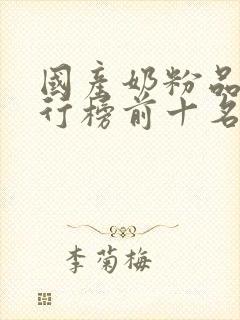 國產奶粉品
行榜前十名
李菊梅